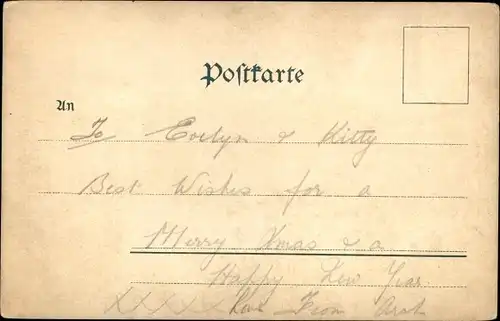 Postkarte
An
To Evelyn & Kitty
Best Wishes for a
Merry Xmas & a
Happy New Year
XXXXX Love From